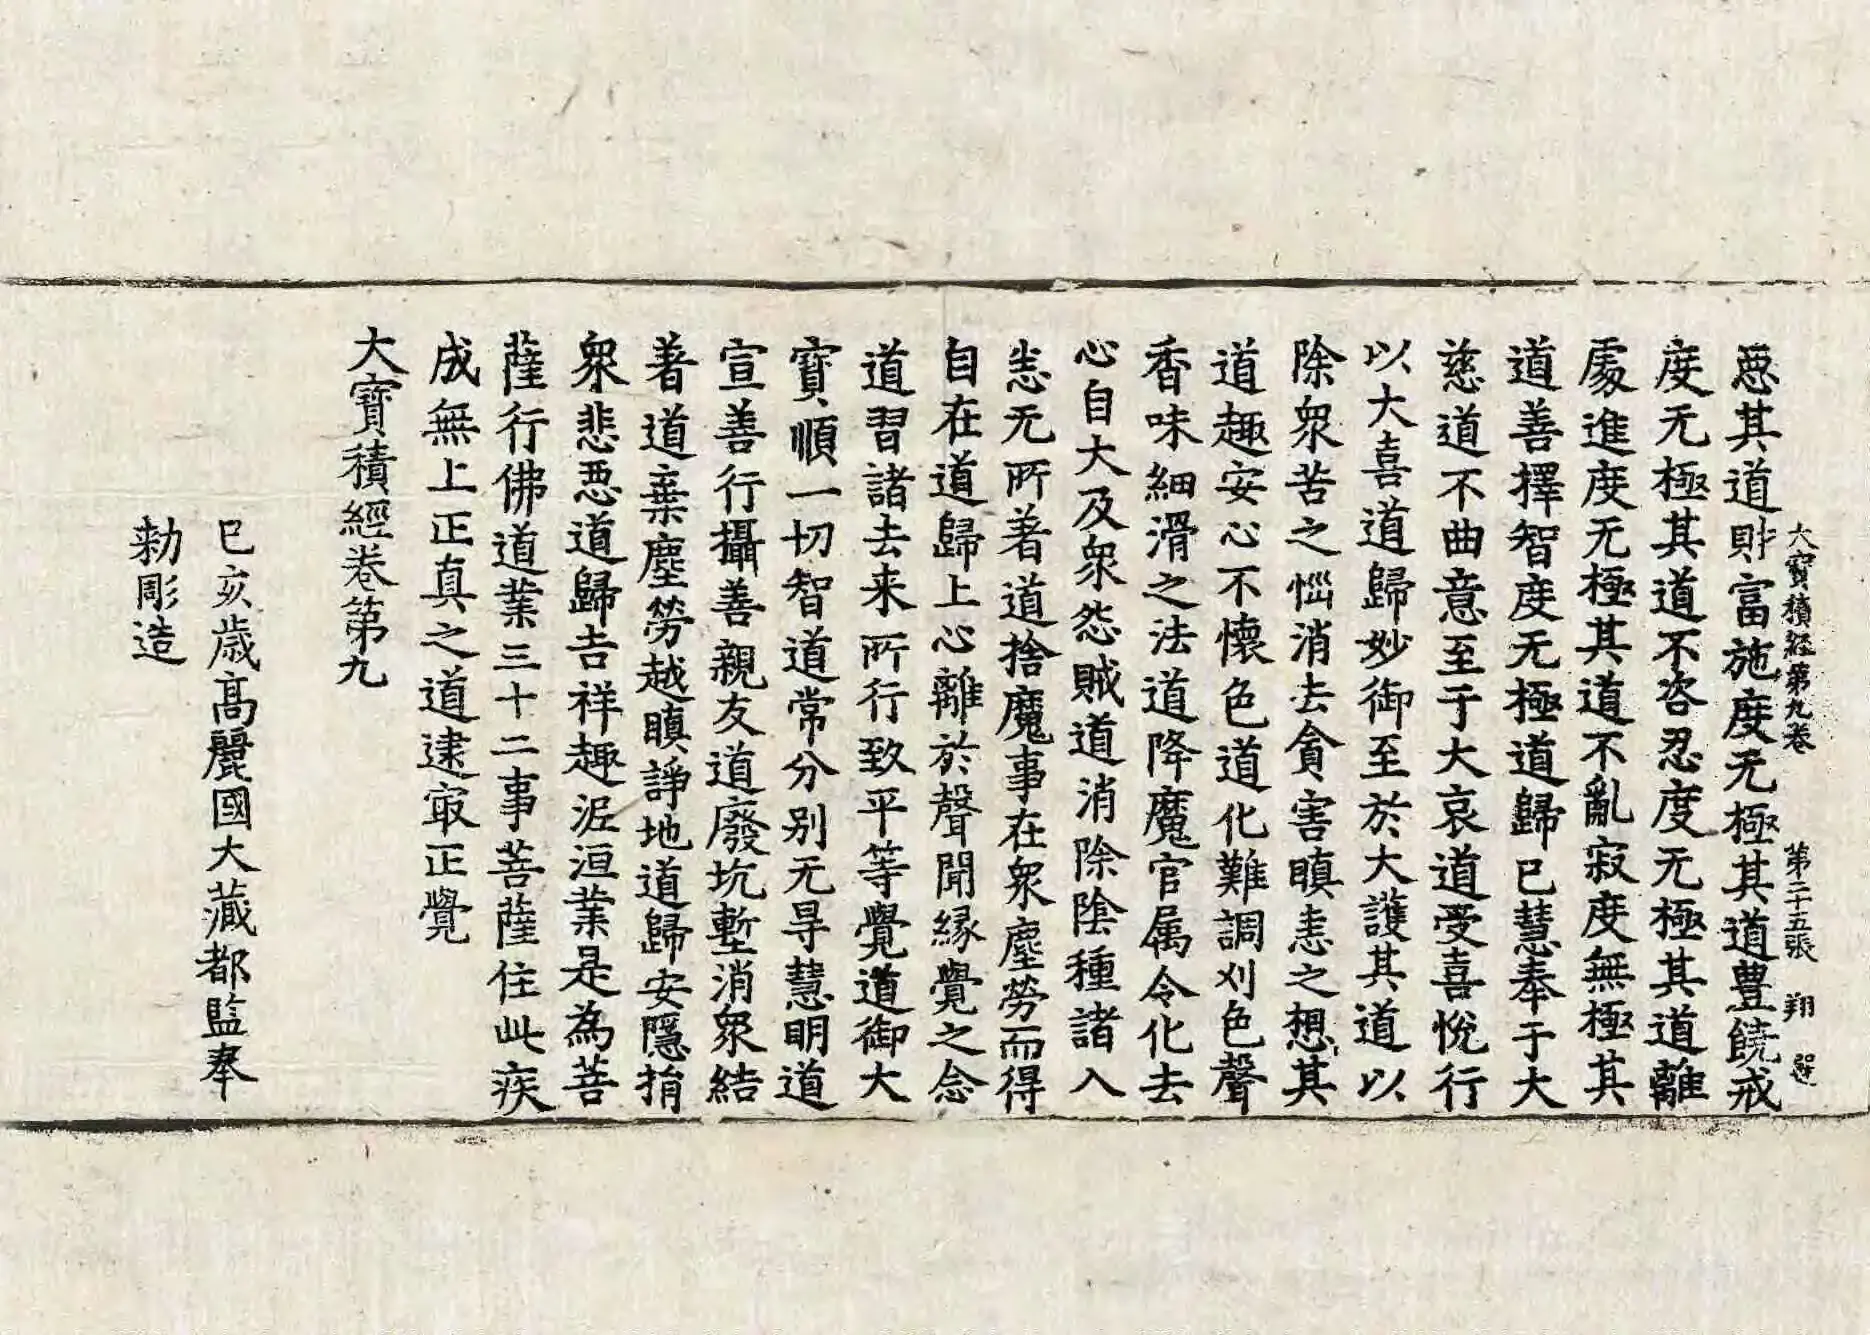 大寶積經第九卷　第二十五張　翔
惡其道財富施度无極其道豊饒戒
度无極其道不恣忍度无極其道離
處進度无極其道不亂寂度無極其
道善擇智度无極道歸已慧奉于大
慈道不曲意至于大哀道受喜悅行
以大喜道歸妙御至於大護其道以
除衆苦之惱消去貪害瞋恚之想其
道趣安心不懷色道化難調刈色聲
香味細滑之法道降魔官属令化去
心自大及衆怨賊道消除陰種諸入
恚无所著道捨魔事在衆塵勞而得
自在道歸上心離於聲聞緣覺之念
道習諸去来所行致平等覺道御大
寶順一切智道常分别无㝵慧明道
宣善行攝善親友道廢坑塹消衆結
著道棄塵勞越瞋諍地道歸安隱捐
衆悲惡道歸吉祥趣泥洹業是為菩
薩行佛道業三十二事菩薩住此疾
成無上正真之道逮冣正覺
大寶積經卷第九
巳亥歲高麗國大藏都監奉
勅彫造